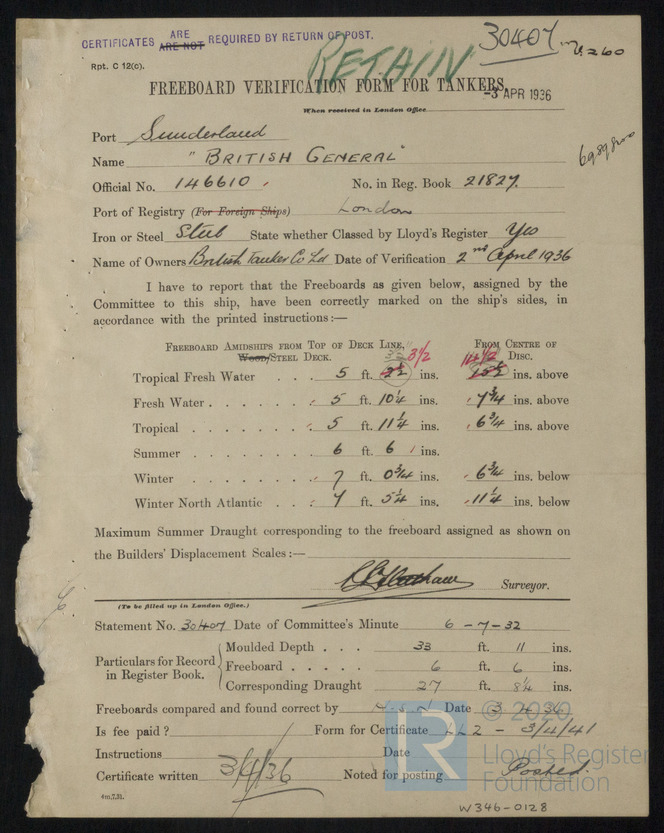 CERTIFICATES ARE ARE NOT REQUIRED BY RETURN OF POST.
RETAIN
30407
Rpt. C 12(c).
FREEBOARD VERIFICATION FORM FOR TANKERS
-3 APR 1936
When received in London Office
Port Sunderland
Name "BRITISH GENERAL"
Official No. 146610 No. in Reg. Book 21827.
Port of Registry (For Foreign Ships) London
Iron or Steel Steel State whether Classed by Lloyd's Register Yes
Name of Owners British Tanker Co Ld Date of Verification 2nd April 1936
I have to report that the Freeboards as given below, assigned by the
Committee to this ship, have been correctly marked on the ship's sides, in
accordance with the printed instructions:—
FREEBOARD AMIDSHIPS FROM TOP OF DECK LINE, FROM CENTRE OF
Wood/STEEL DECK. 3 1/2 14 1/2 DISC.
Tropical Fresh Water . . . 5 ft. ins. ins. above
Fresh Water . . . . . . 5 ft. 10 1/4 ins. 7 3/4 ins. above
Tropical . . . . . . . 5 ft. 11 1/4 ins. 6 3/4 ins. above
Summer . . . . . . . 6 ft. 6 ins.
Winter . . . . . . . 7 ft. 0 3/4 ins. 6 3/4 ins. below
Winter North Atlantic . . . 7 ft. 5 1/4 ins. 11 1/4 ins. below
Maximum Summer Draught corresponding to the freeboard assigned as shown on
the Builders' Displacement Scales:—
Surveyor.
(To be filled up in London Office.)
Statement No. 30407 Date of Committee's Minute 6-7-32
Particulars for Record in Register Book.
Moulded Depth . . . 33 ft. 11 ins.
Freeboard . . . . . 6 ft. 6 ins.
Corresponding Draught 27 ft. 8 1/4 ins.
Freeboards compared and found correct by Date 3.4.36
Is fee paid? Form for Certificate LL2 - 3/4/41
Instructions Date
Certificate written 3/4/36 Noted for posting Posted.
4m,7,31.
© 2020
LR
Lloyd's Register
Foundation
W346-0128